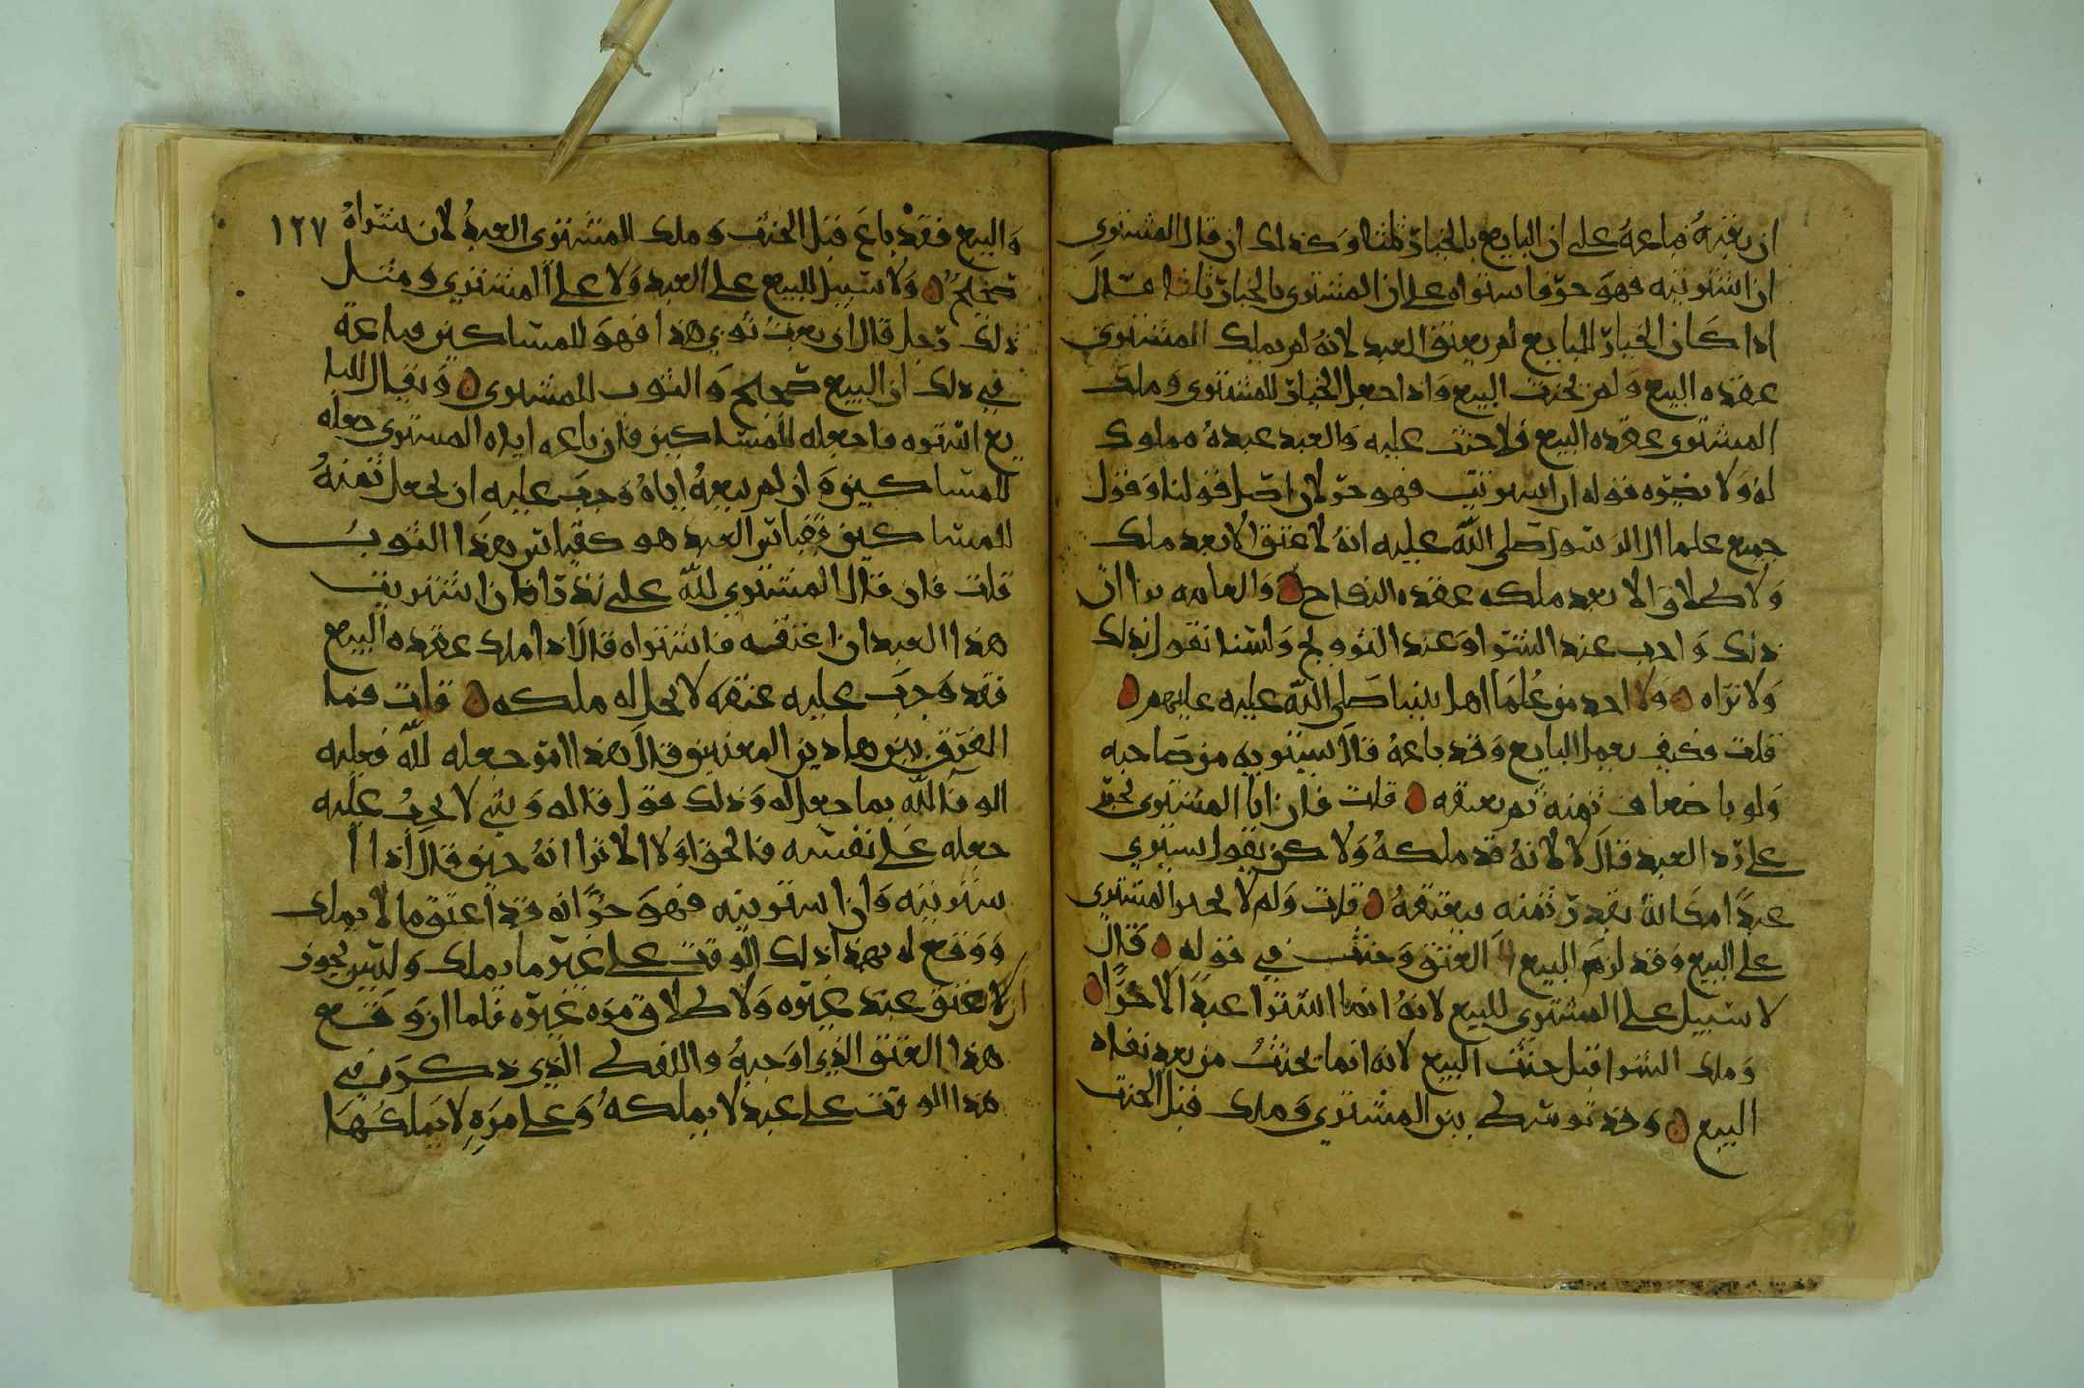 ان بعته فباعه على ان البايع بالخيار ثلثا وكذلك ان قال المشتري
ان اشتريته فهو حر فاشتراه على ان المشتري بالخيار ثلثا قال
اذا كان الخيار للبايع لم يعتق العبد لانه لم يملك المشتري
عقده البيع ولم يحنث البيع واذا جعل الخيار للمشتري وملك
المشتري عقده البيع فلا حنث عليه والعبد عبده مملوك
له ولا يضره قوله ان اشتريت فهو حر لان اصل قولنا وقول
جميع علما ال الرسول صلى الله عليه انه لا عتق الا بعد ملك
ولا طلاق الا بعد ملكه عقده النكاح والعامه ترا ان
ذلك واجب عند الشرا وعند التزويج ولسنا نقول بذلك
ولا نراه ولا احد من علما اهل بيت نبينا صلى الله عليه وعليهم
قلت فكيف يعمل البايع وقد باعه قال يشتريه من صاحبه
ولو باضعاف ثمنه ثم يعتقه قلت فان ابا المشتري يجبر
على رد العبد قال لا لانه قد ملكه ولاكن يقول يشتري
عبدا مكانه بقدر ثمنه فيعتقه قلت ولم لا يجبر المشتري
على البيع وقد لزم البيع العتق وحنث في قوله قال
لا سبيل على المشتري للبيع لانه انما اشترا عبدا لا حرا
وملك الشرا قبل حنث البيع لانه انما يحنث من بعد نفاد
البيع وقد توسط بين المشتري وملك قبل الحنث
والبيع فقد باع قبل الحنث وملك المشتري العبد لان شراه ١٢٧
صحيح ولا سبيل للبيع على العبد ولا على المشتري ومثل
ذلك رجل قال ان بعت ثوبي هذا فهو للمساكين فباعه
في ذلك ان البيع صحيح والثوب للمشتري ويقال للبا
يع اشتره فاجعله للمساكين فان باعه اياه المشتري جعله
للمساكين وان لم يبعه اياه وجب عليه ان يجعل ثمنه
للمساكين فقياس العبد هو كقياس هذا الثوب
قلت فان قال المشتري لله علي نذرا ان اشتريت
هذا العبد ان اعتقه فاشتراه قال اذا ملك عقده البيع
فقد وجب عليه عتقه لا يحل له ملكه قلت فما
الفرق بين هاذين المعنيين قال هذا امر جعله لله فعليه
الوفا لله بما جعل له وذلك قول قاله وشي لا يجب عليه
جعله على نفسه فالحق اولا الا ترا انه حين قال اذا ا
شتريته وان اشتريته فهو حر انه قد اعتق ما لا يملك
ووقع له بهذا ذلك الوقت على غير ما يملك وليس يجوز
ان لا عتق عبد غيره ولا طلاق مره غيره فلما ان وقع
هذا العتق الذي اوجبه واللفظ الذي ذكره في
هذا الوقت على عبد لا يملكه وعلى مره لا يملكها